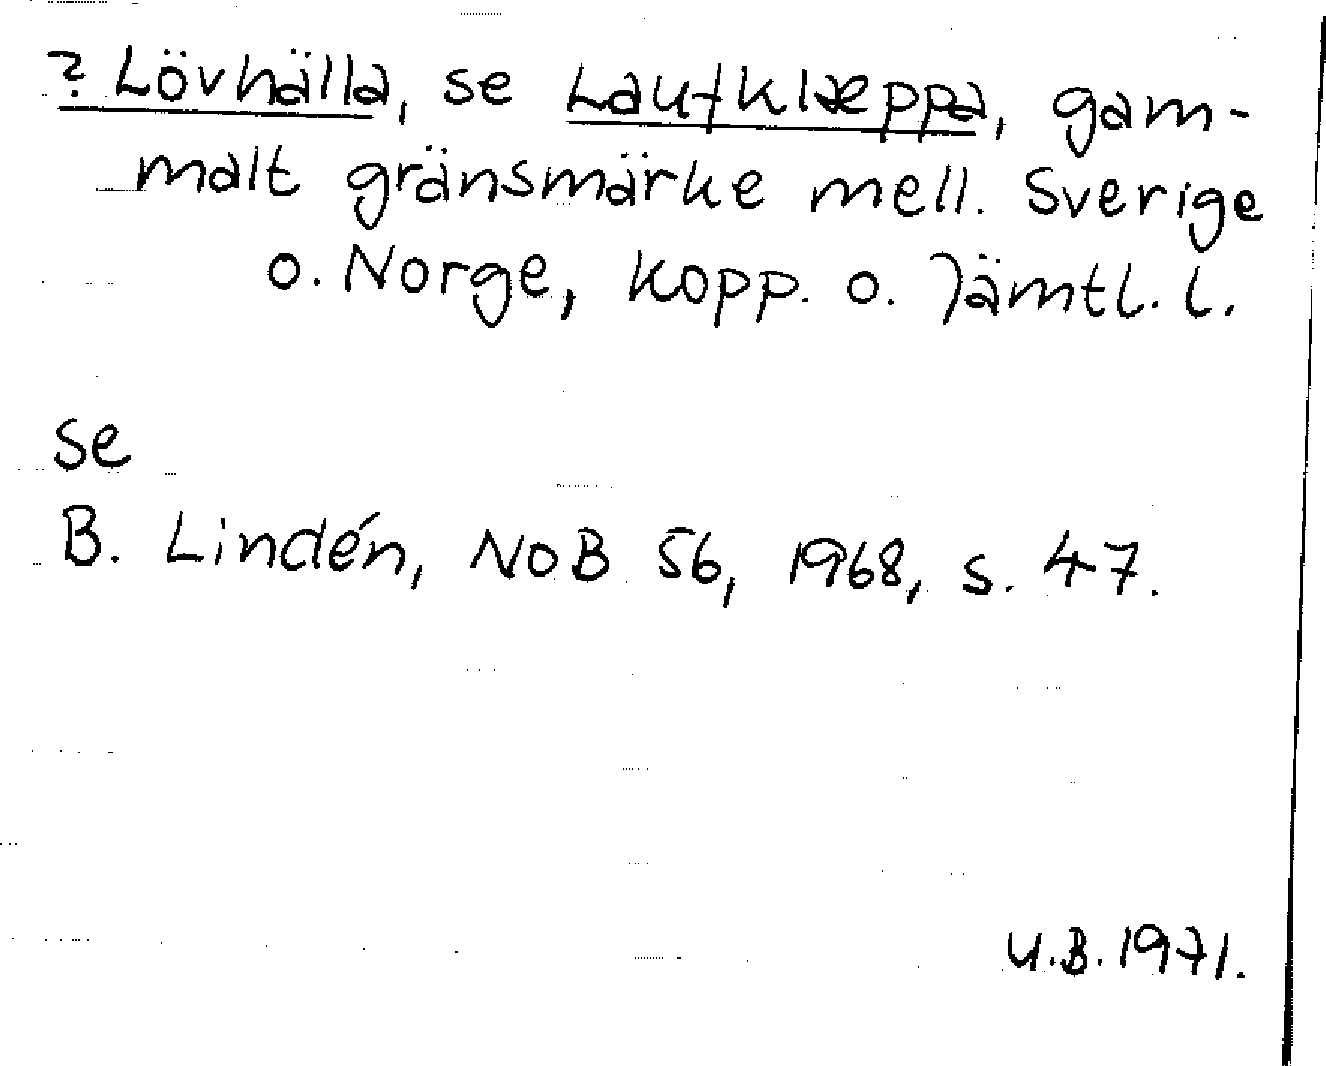 ? Lövhälla, se Laufklæppa, gam-
malt gränsmärke mell. Sverige
o. Norge, Kopp. o. Jämtl. l.
se
B. Lindén, NoB 56, 1968, s. 47.
U.B. 1971.